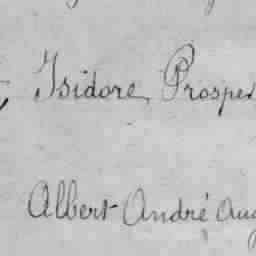 Isidore, Prosper
Albert André Aug